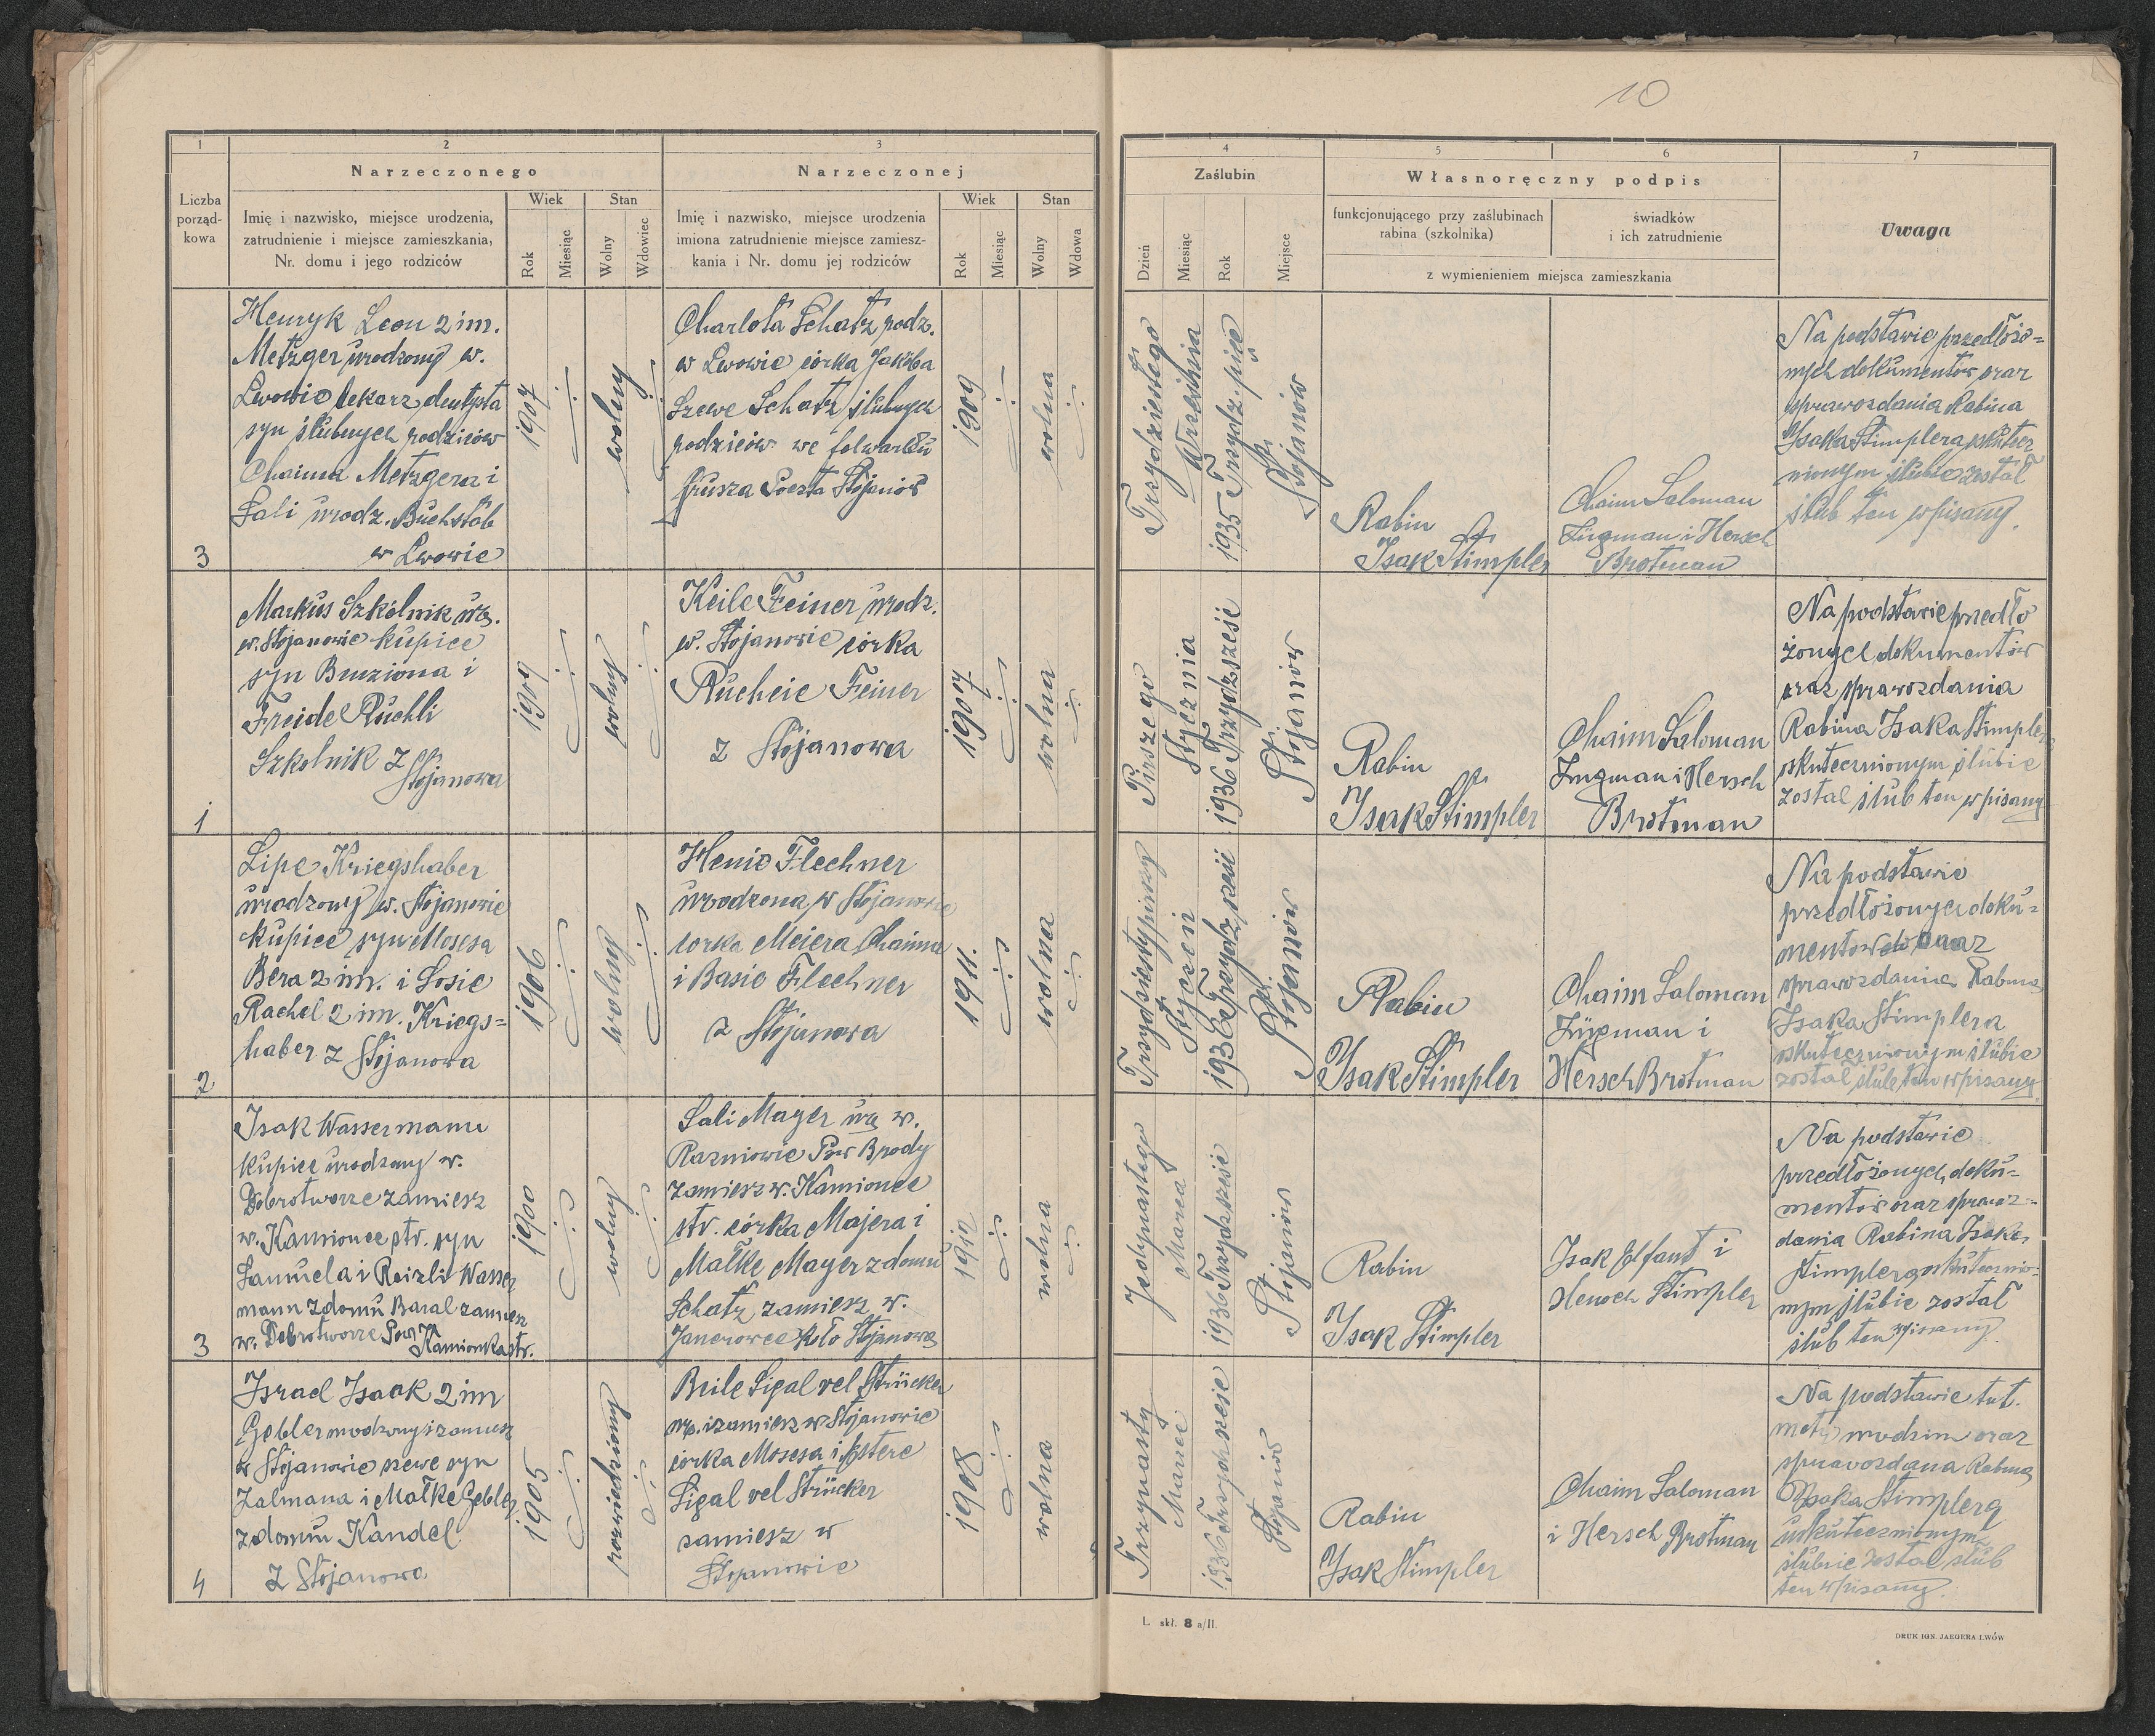 10
1
2
3
4
5
6
7
Liczba
porząd-
kowa
Narzeczonego
Imię i nazwisko, miejsce urodzenia,
zatrudnienie i miejsce zamieszkania,
Nr. domu i jego rodziców
Wiek
Rok
Miesiąc
Stan
Wolny
Wdowiec
Narzeczonej
Imię i nazwisko, miejsce urodzenia
imiona zatrudnienie miejsce zamiesz-
kania i Nr. domu jej rodziców
Wiek
Rok
Miesiąc
Stan
Wolny
Wdowa
Zaślubin
Dzień
Miesiąc
Rok
Miejsce
Własnoręczny podpis
funkcjonującego przy zaślubinach
rabina (szkolnika)
świadków
i ich zatrudnienie
z wymienieniem miejsca zamieszkania
Uwaga
3
Henryk Leon 2 im.
Metzger urodzony w.
Lwowie lekarz dentysta
syn ślubnych rodziców
Chaima Metzgera i
Sali urodz. Buchstab
w Lwowie
1907
wolny
Charlota Schatz rodz.
w Lwowie córka Jakóba
Szewe Schatz ślubnych
rodziców we folwarku
Grusza Poczta Stojanów
1909
wolna
Trzydziestego
Września
1935 Trzydz. pięć
Stojanów
Rabin
Isak Stimpler
Chaim Saloman
Zugman i Hersch
Brotman
Na podstawie przedłożo=
nych dokumentów oraz
sprawozdania Rabina
Isaka Stimplera uskutecz
nionym ślubie został
ślub ten wpisany.
1
Markus Szkolnik ur.
w. Stojanowie kupiec
syn Benziona i
Freide Ruchli
Szkolnik z
Stojanowa
1909
wolny
Keile Feiner urodz.
w. Stojanowie córka
Rucheie Feiner
z Stojanowa
1907
wolna
Pirszego
Stycznia
1936 Trzydz sześć
Stojanów
Rabin
Isak Stimpler
Chaim Saloman
Zugman i Hersch
Brotman
Na podstawie przedło
żonych dokumentów
oraz sprawozdania
Rabina Isaka Stimplera
uskutecznionym ślubie
zostal ślub ten wpisany
2
Lipe Kriegshaber
urodzony w. Stojanowie
kupiec syn Mosesa
Bera 2 im. i Sosie
Rachel 2 im. Kriegs=
haber z Stojanowa
1906
wolny
Henie Flechner
urodzona w Stojanowie
corka Meiera Chaima
i Basie Flechner
z Stojanowa
1911.
wolna
Styczeń
1936 Trzydz sześć
Stojanów
Rabin
Isak Stimpler
Chaim Saloman
Zugman i
Hersch Brotman
Na podstawie
przedłożonych doku=
mentow oraz
sprawozdania Rabina
Isaka Stimplera
uskutecznionym ślubie
zostal ślub ten wpisany
3
Isak Wassermann
kupiec urodzony w.
Dobrotworze zamiesz
w. Kamionce str. syn
Samuela i Reizli Wasser
mann z domu Baral zamiesz
w. Dobrotworze Pow Kamionka str.
1900
wolny
Sali Mayer ur w.
Razniowie Pow Brody
zamiesz w. Kamionce
str. córka Majera i
Malke Mayer z domu
Schatz zamiesz w.
koło Stojanowa
1912
wolna
Jedynastego
Marca
1936 Trzydz sześć
Stojanów
Rabin
Isak Stimpler
Isak Elfant i
Henoch Stimpler
Na podstawie
przedłożonych doku=
mentów oraz sprawoz=
dania Rabina Isaka
Stimplera uskutecznio=
nym ślubie został
ślub ten wpisany.
4
Israel Isaak 2 im
Gebler urodzony i zamiesz
w Stojanowie szewc syn
Zalmana i Malke Gebler
z domu Kandel
z Stojanowa
1905
rozwiedziony
Beile Sigal vel Strücker
ur. i zamiesz w Stojanowie
córka Mosesa i Estere
Sigal vel Strücker
zamiesz w
Stojanowie
1908
wolna
Trzynasty
Marzec
1936 Trzydz sześć
Stojanów
Rabin
Isak Stimpler
Chaim Saloman
i Hersch Brotman
Na podstawie tut.
metr urodzin oraz
sprawozdana Rabina
Isaka Stimplera
uskutecznionym
ślubie zostal ślub
ten wpisany.
L. skł. 8 a/II.
DRUK IGN. JAEGERA LWÓW